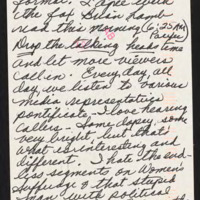 format. I agree with
the fax Brian Lamb
read this morning (6:25 AM
Pacific
Drop the talking heads time
and let more viewers
call-in. Every day, all
day, we listen to various
media representatives
pontificate - I love hearing
callers - Some dopey, some
very bright, but that's
what is interesting and
different. I hate the end-
less segments on Women's
Suffrage & that stupid
man with political